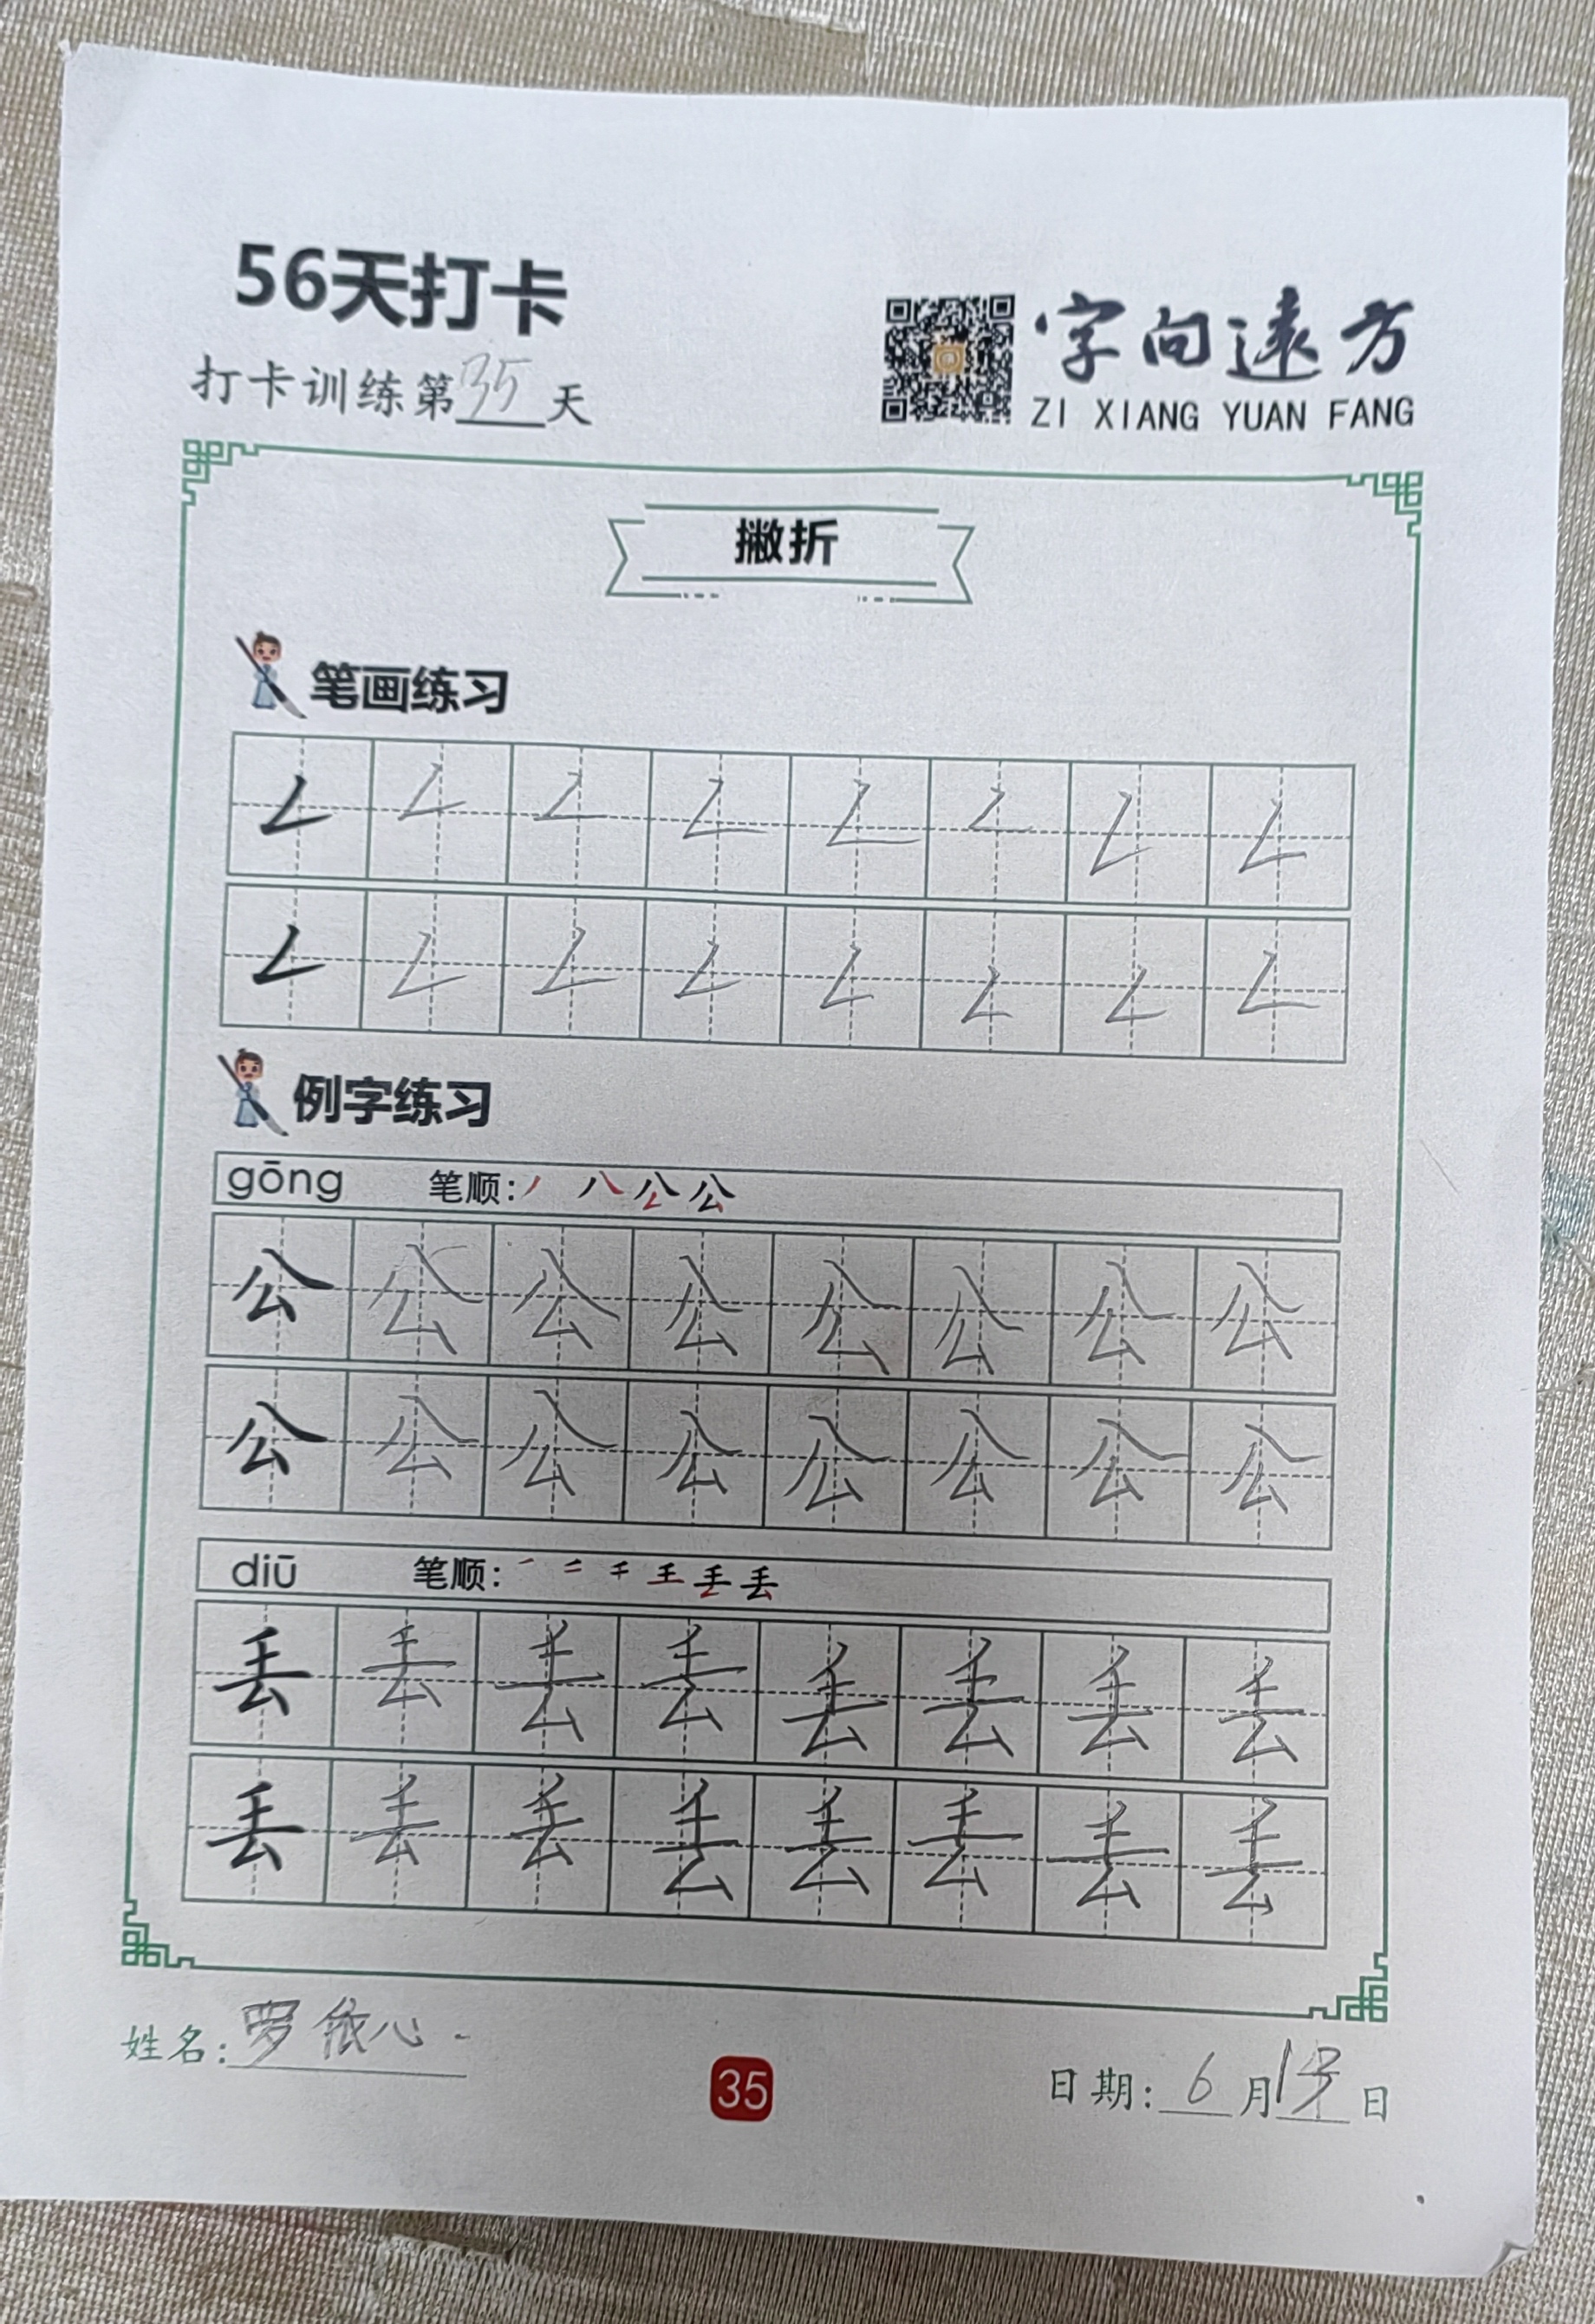 56天打卡
打卡训练第35天
字向遠方
ZI XIANG YUAN FANG
撇折
笔画练习
例字练习
gōng 笔顺:
公 公 公 公 公 公 公 公
公 公 公 公 公 公 公 公
diū 笔顺:
丢 丢 丢 丢 丢 丢 丢 丢
丢 丢 丢 丢 丢 丢 丢 丢
姓名:罗依心
35
日期:6月日